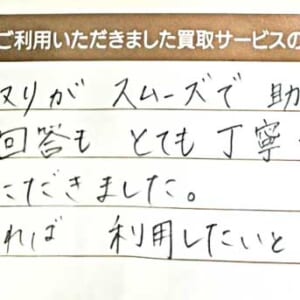 ご利用いただきました買取サービスの
取りが スムーズで 助
回答も とても 丁寧
ただきました。
れば 利用したいと